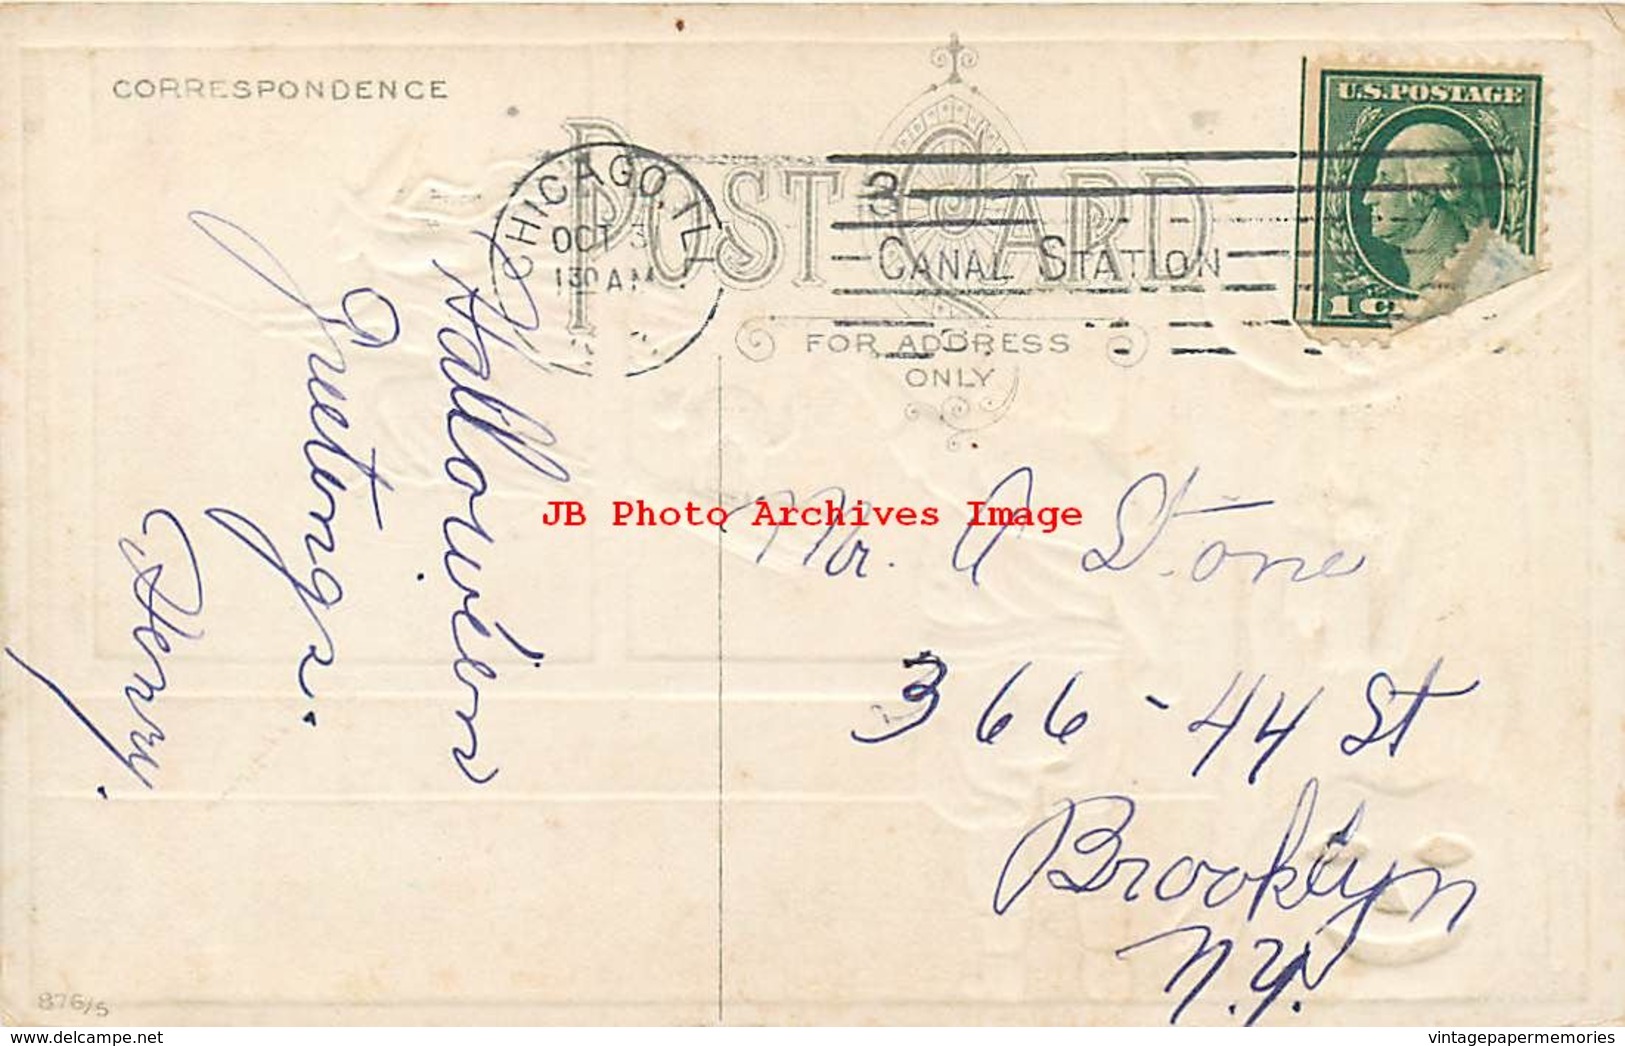 CORRESPONDENCE
POST CARD
FOR ADDRESS
ONLY
U.S. POSTAGE
CHICAGO, ILL
OCT 3
130 AM
3
CANAL STATION
Hallowe'en
Greetings.
Henry.
JB Photo Archives Image
Mr. A Stone
366-44 St
Brooklyn
N.Y.
876/5
delcampe.net
vintagepapermemories